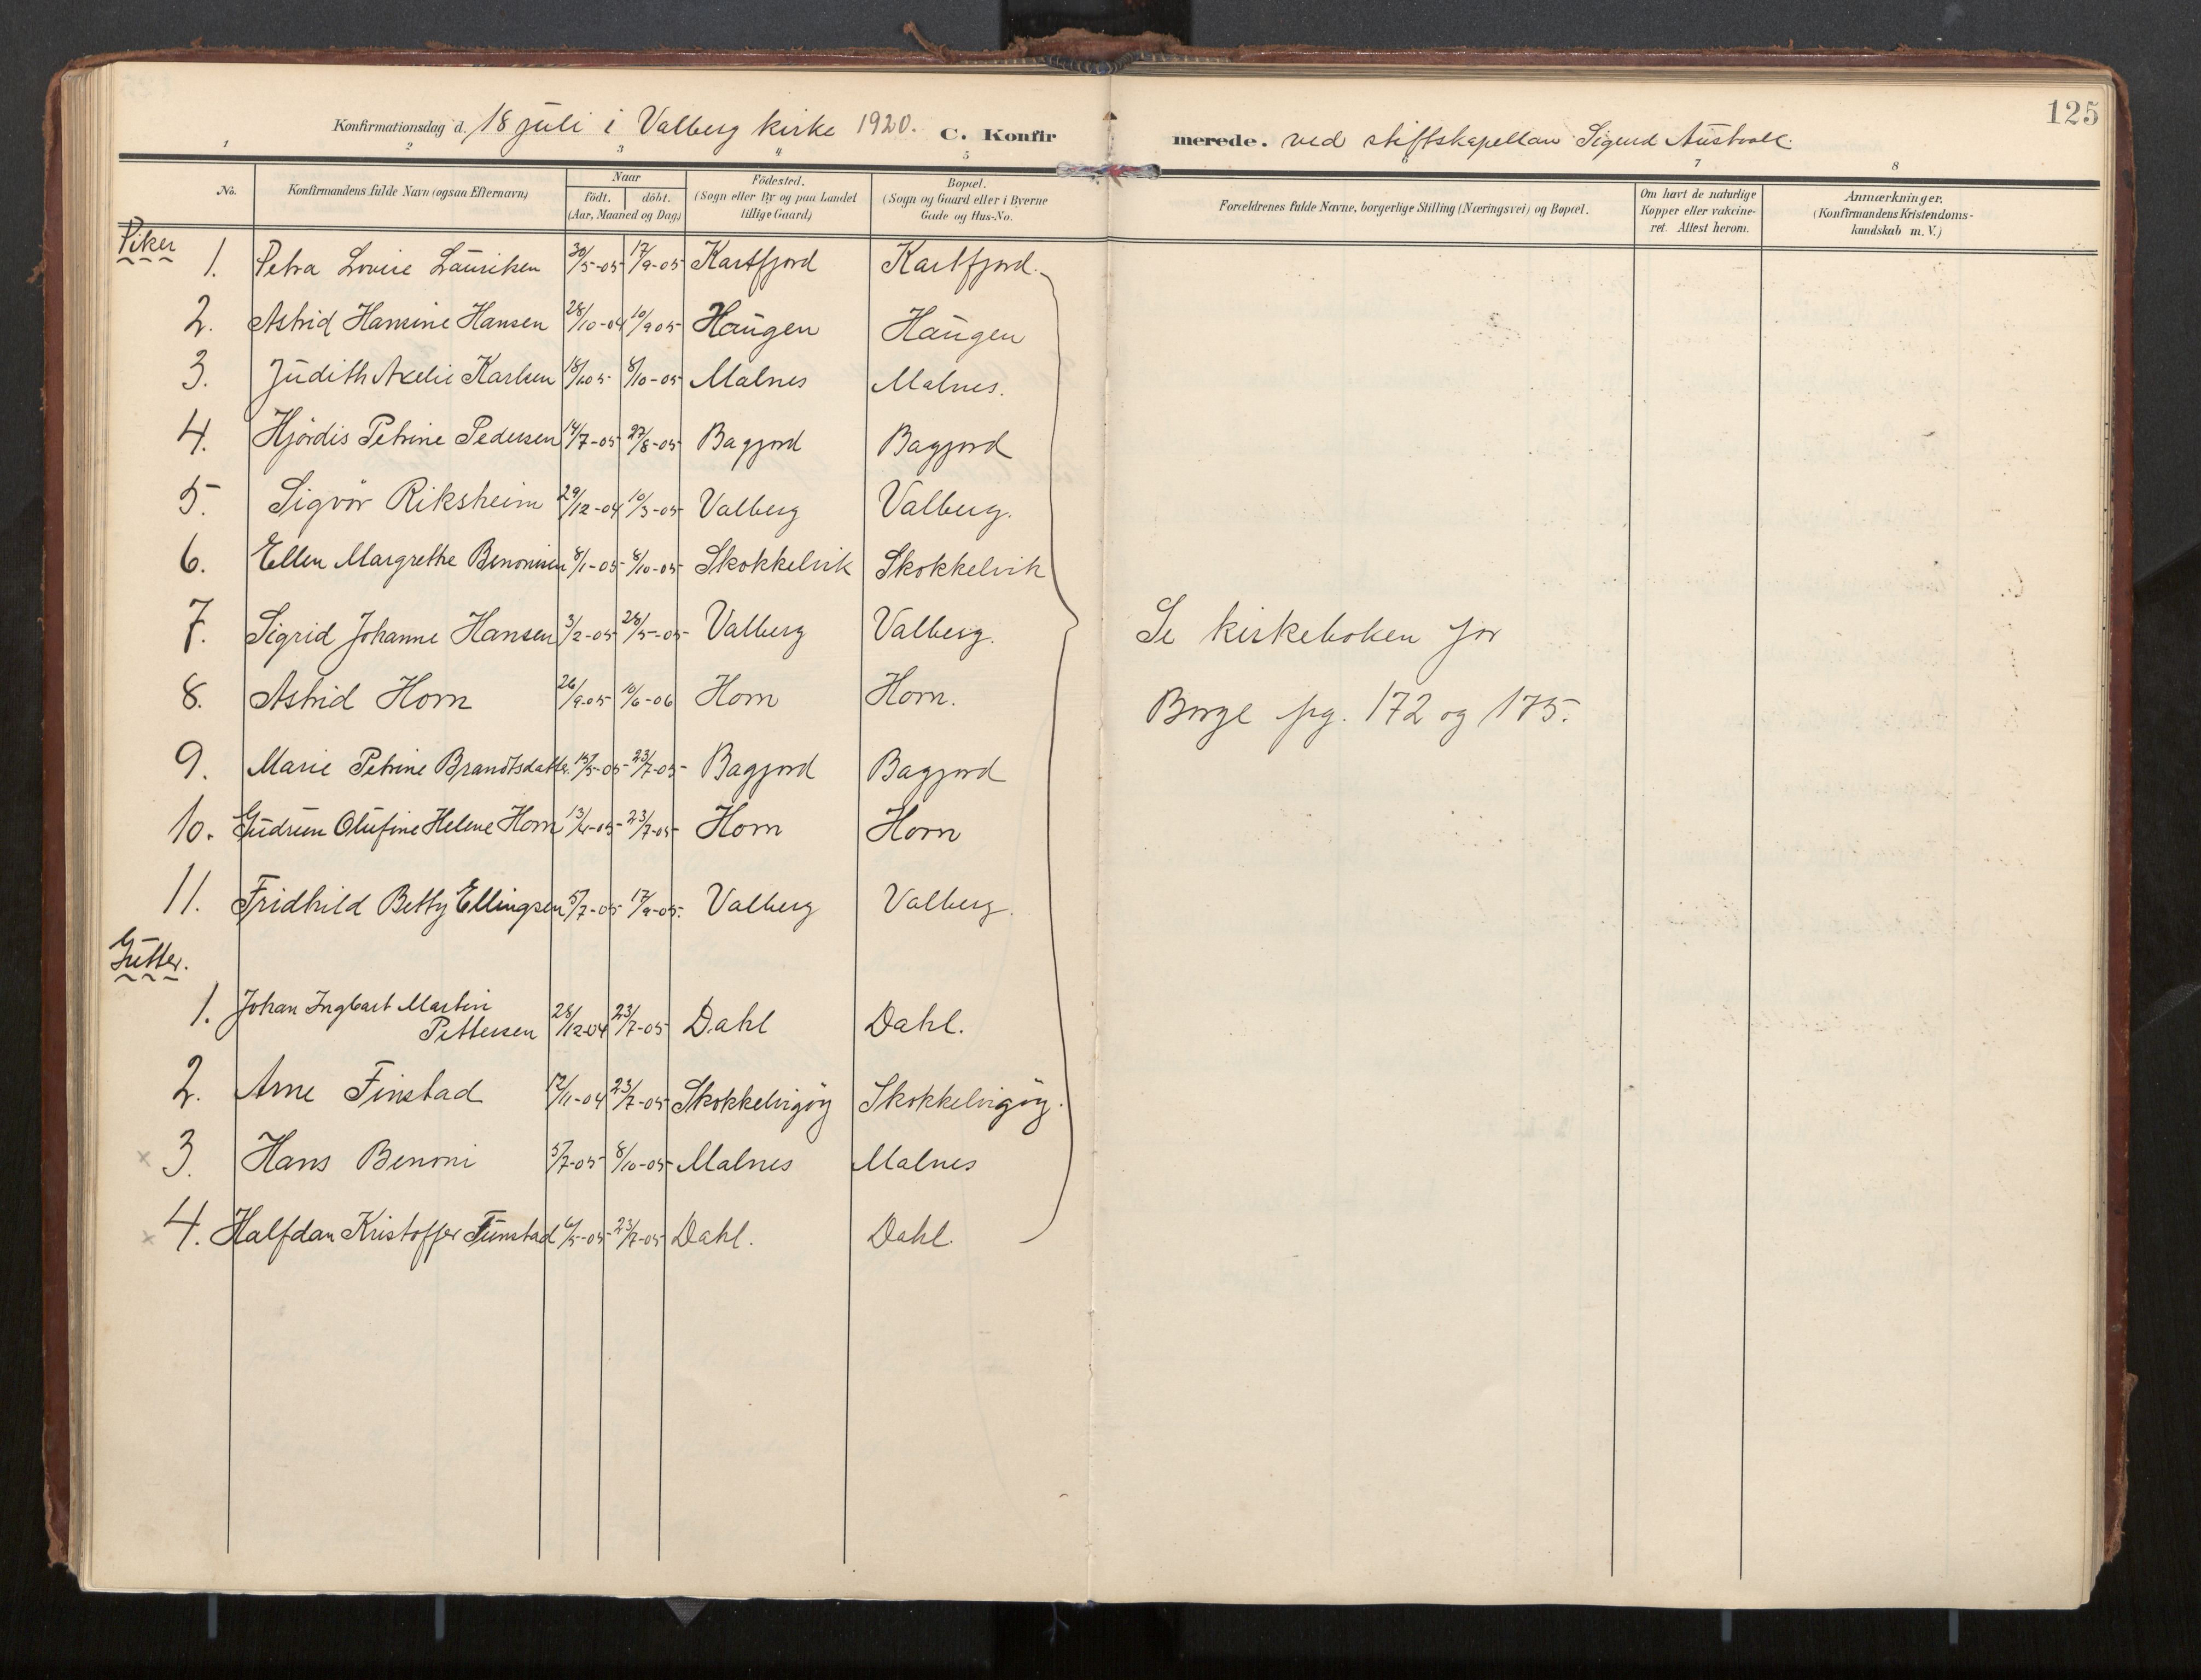 125
Konfirmationsdag d. 18 juli i Valberg kirke 1920. C. Konfirmerede. ved stiftskapellan Sigurd
1 2 3 4 5 6 7 8
No. Konfirmandens fulde Navn (ogsaa Efternavn) Naar födt. döbt. (Aar, Maaned og Dag) Födested. (Sogn eller By og paa Landet tillige Gaard) Bopæl. (Sogn og Gaard eller i Byerne Gade og Hus-No. Forældrenes fulde Navne, borgerlige Stilling (Næringsvei) og Bopæl. Om havt de naturlige Kopper eller vakcineret. Attest herom. Anmærkninger. (Konfirmandens Kristendomskundskab m. V.)
Piker
1. Petra Lovise Lauriksen 30/5-05 17/9-05 Kartfjord Kartfjord.
2. Astrid Hansine Hansen 28/10-04 10/9 05 Haugen Haugen
3. Judith Axelie Karlsen 8/10-05 Malnes Malnes.
4. Hjördis Petrine Pedersen 14/7-05 27/8-05 Bagjord Bagjord
5. Sigvör Riksheim 29/12-04 10/3-05 Valberg Valberg.
6. Ellen Margrethe Benonisen 8/1-05 8/10-05 Skokkelvik Skokkelvik
7. Sigrid Johanne Hansen 3/2-05 28/5-05 Valberg Valberg.
Se kirkeboken for
8. Astrid Horn 26/9-05 10/6-06 Horn Horn.
Borge pg. 172 og 175.
9. Marie Petrine Brandtsdatter. 23/7-05 Bagjord Bagjord
10. Gudrun Olufine Helene Horn 13/4-05 23/7-05 Horn Horn
11. Fridhild Betty Ellingsen 5/7-05 17/9-05. Valberg Valberg.
Gutter.
1. Johan Ingbart Martin
Pettersen 28/12-04 23/7-05 Dahl Dahl.
2. Arne Finstad 12/11-04 23/7-05 Skokkelvigöy Skokkelvigöy.
x 3. Hans Benoni 5/7-05 8/10-05 Malnes Malnes
x 4. Halfdan Kristoffer Finstad 6/5-05 23/7-05 Dahl. Dahl.